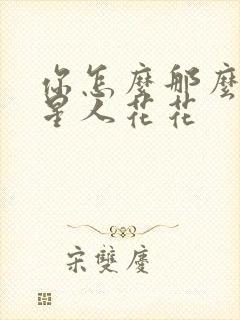 你怎麼那麼
星人花花
宋雙慶